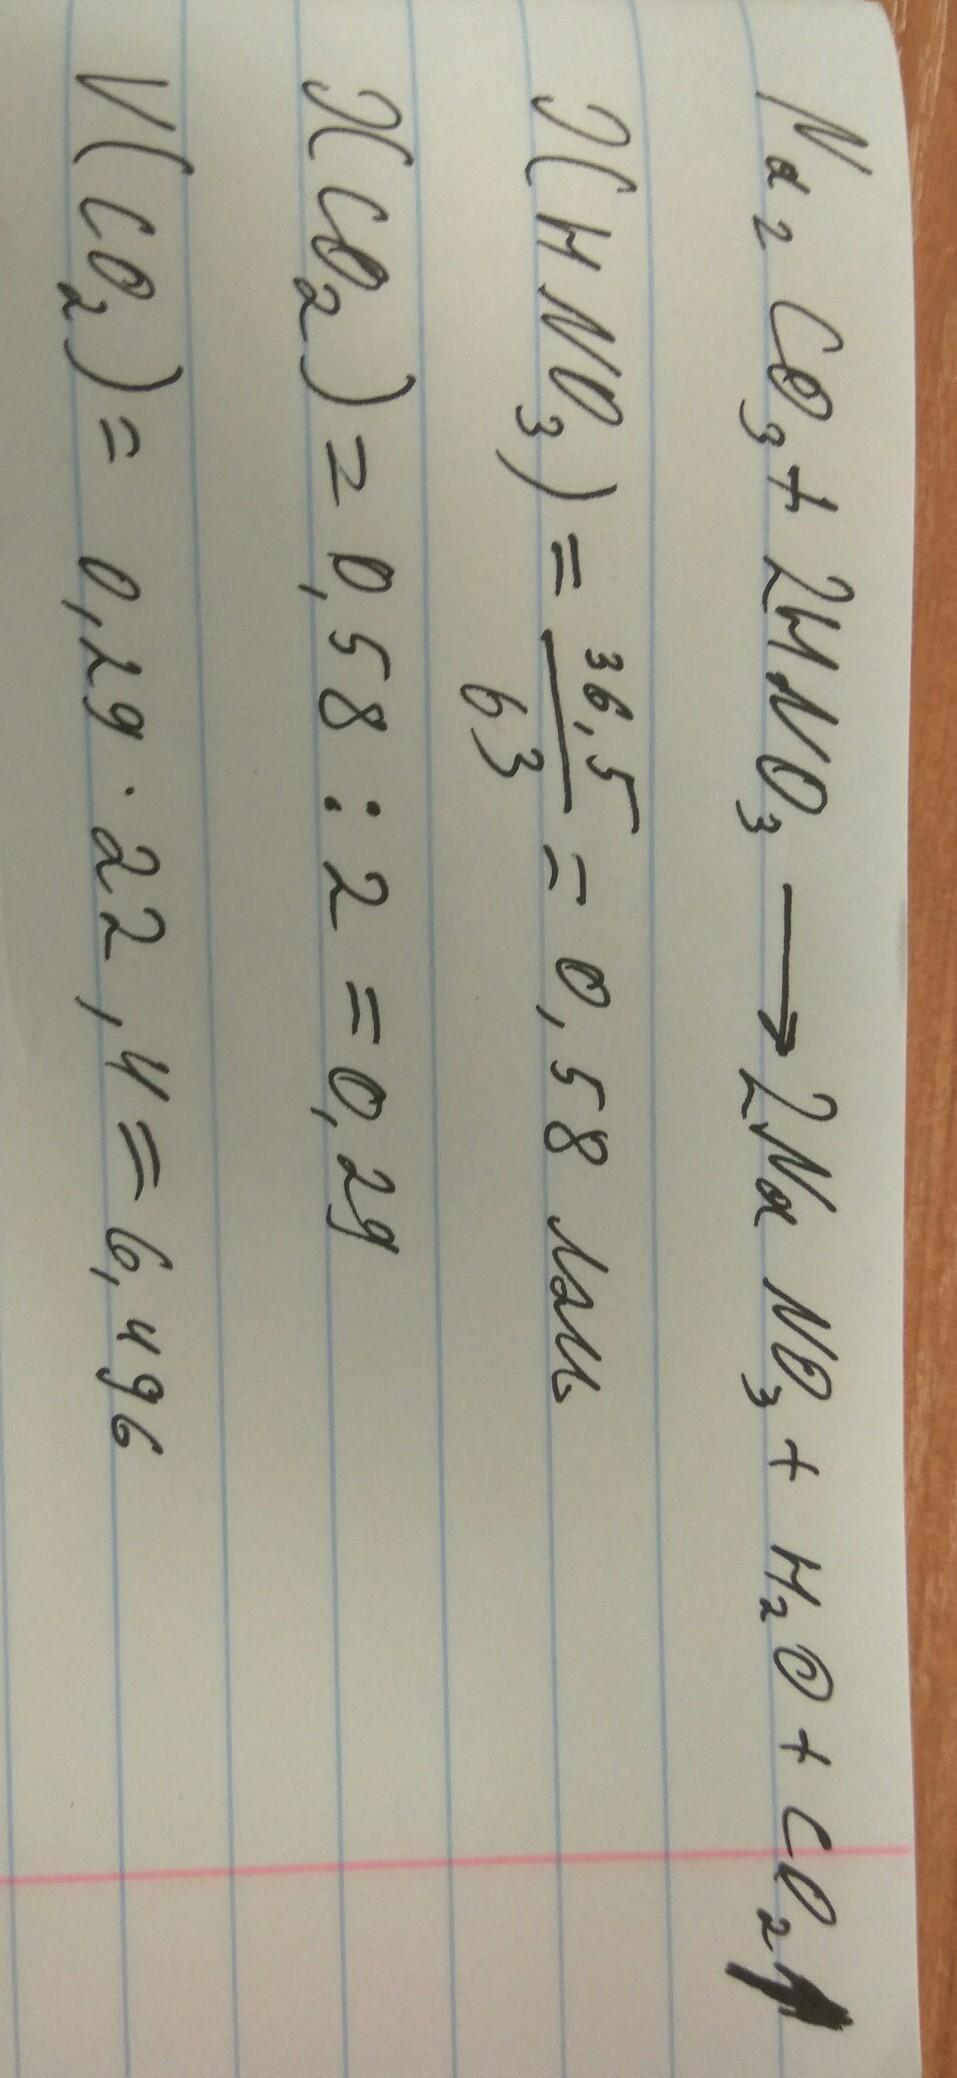 Na₂CO₃ + 2HNO₃ → 2NaNO₃ + H₂O + CO₂↑
n(HNO₃) = 36,5/63 = 0,58 моль
n(CO₂) = 0,58 : 2 = 0,29
V(CO₂) = 0,29 · 22,4 = 6,496